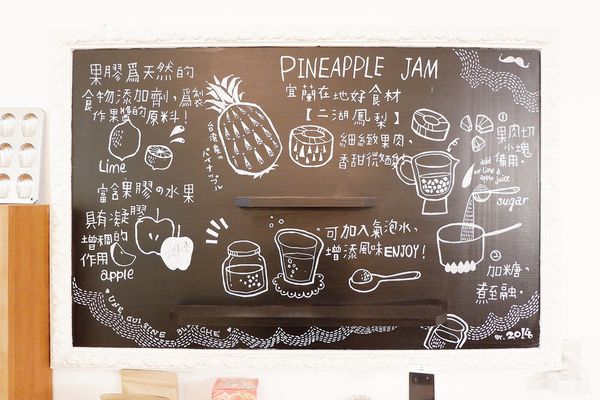 果膠爲天然的
食物添加劑，爲製
作果醬的原料！
Lime
富含果膠の水果
具有凝膠
增稠的
作用
apple
台湾産の
パイナップル
PINEAPPLE JAM
宜蘭在地好食材
【二湖鳳梨】
細緻果肉、
香甜
可加入氣泡水，
增添風味ENJOY！
①
果肉切
小塊
備用。
add
lime &
apple juice.
sugar
②
加糖，
煮至融。
UNE CUISINE
er. 2014.